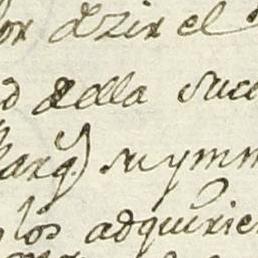 or dezir el
d de ella suce
Marq.) su ymm
los adquirie